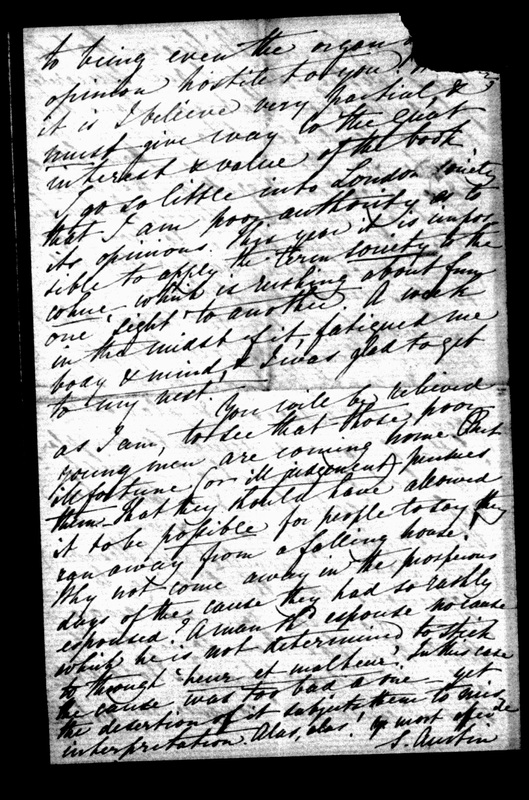 to being even the organ
opinion hostile to you,
it is I believe very partial &
must give way to the great
interest & value of the book
I go so little into London society
that I am poor authority as to
its opinions. This year it is impos
sible to apply the term society to the
cohue which is rushing about from
one 'sight' to another. A week
in the midst of it, fatigued me
body & mind, & I was glad to get
to my nest.
You will be relieved
as I am, to see that those poor
young men are coming home. But
ill fortune (or ill judgment) pursues
them that they should have allowed
it to be possible for people to say they
ran away from a falling house.
Why not come away in the prosperous
days of the cause they had so rashly
espoused? A man shd espouse no cause
which he is not determined to stick
to through 'heur et malheur'. In this case
the cause was too bad a one - yet
the desertion of it subjects them to mis
interpretation. Alas, alas! Yr most affecte
S. Austin